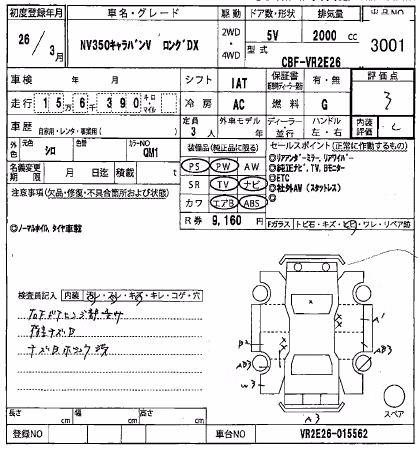 初度登録年月 車名・グレード 駆動 ドア数・形状 排気量 出品NO
26 / 3月 NV350キャラバンV ロングDX 2WD・4WD 5V 2000 cc 3001
型式 CBF-VR2E26
車検 年 月 シフト IAT 保証書 有・無 評価点
走行 15万6千390 キロ・マイル 冷房 AC 燃料 G 3
車歴 自家用・レンタ・事業用( ) 定員 3人 外車モデル 年 ディーラー 並行 ハンドル 左・右 内装評価 C
外色 元色 シロ 色替 カラーNO QM1
装備品(純正品に限る) セールスポイント(正常に作動するもの)
名義変更期限 月 日迄 積載 t
PS PW AW
◎リアアンダーミラー、リアワイパー
◎純正ナビ、TV、Bモニター
注意事項(欠品・修復・不具合箇所および状態)
SR TV ナビ
◎ETC
◎社外AW(スタッドレス)
カワ エアB ABS
◎
◎ノーマルホイル、タイヤ車載
R券 9,160 円
Fガラス トビ石・キズ・ヒビ・ワレ・リペア跡
検査員記入 内装 汚レ・スレ・キズ・キレ・コゲ・穴
A1
B2
AB3 AB3
W3
A3
スペア
長さ cm 幅 cm 高さ cm
登録NO 車台NO VR2E26-015562